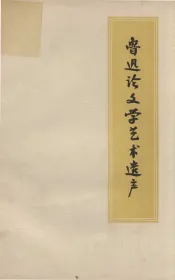 鲁迅论文学艺术遗产